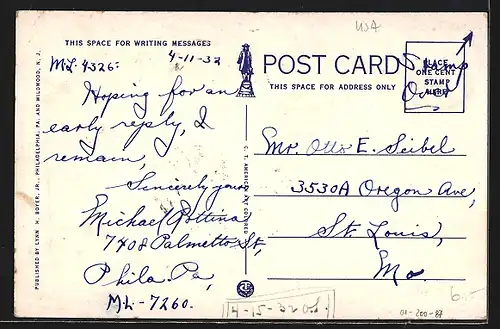 USA
THIS SPACE FOR WRITING MESSAGES
4-11-32
ML-4326:
Hoping for an
early reply, I
remain,
Sincerely yours
Michael
7408 Palmetto St,
Phila. Pa,
M.L-7260.
PUBLISHED BY LYNN H. BOYER, JR., PHILADELPHIA, PA. AND WILDWOOD, N. J.
C. T. AMERICAN ART COLORED
POST CARD
THIS SPACE FOR ADDRESS ONLY
PLACE
ONE CENT
STAMP
HERE
Stamp
Mr. Otto E. Seibel
3530A Oregon Ave,
St. Louis,
Mo.
4-15-32
6.-
01-200-87